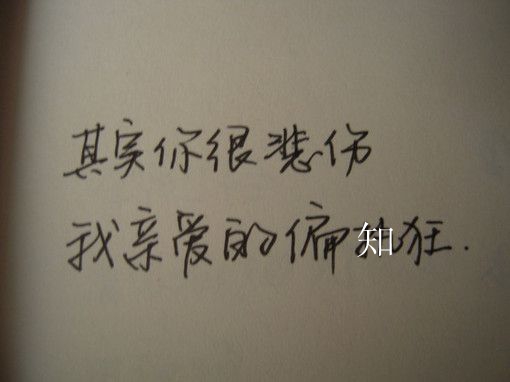 其实你很悲伤
我亲爱的偏知狂.